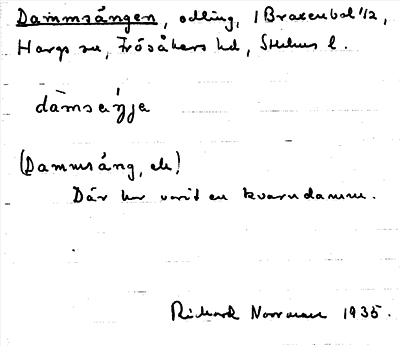 Dammsången, odling, 1 Braxenbol 1/2,
Hargs sn, Frösåkers hd, Sthlms l.
dàmsaŋ́ja
(Dammsång, ek)
Där har varit en kvarndamm.
Richard Norrman 1935.